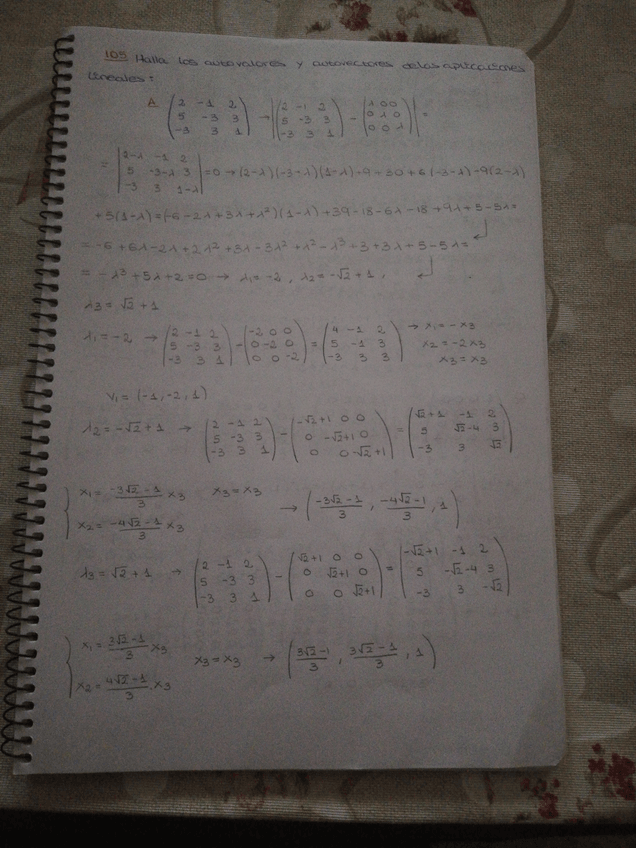 105 Halla los autovalores y autovectores de las aplicaciones
lineales:
A (2 -1 2; 5 -3 3; -3 3 1) → |(2 -1 2; 5 -3 3; -3 3 1) - (λ 0 0; 0 λ 0; 0 0 λ)| =
= |2-λ -1 2; 5 -3-λ 3; -3 3 1-λ| = 0 → (2-λ)(-3-λ)(1-λ)+9+30+6(-3-λ)-9(2-λ)
+5(1-λ) = (-6-2λ+3λ+λ²)(1-λ)+39-18-6λ-18+9λ+5-5λ =
= -6+6λ-2λ+2λ²+3λ-3λ²+λ²-λ³+3+3λ+5-5λ =
= -λ³+5λ+2=0 → λ₁=-2, λ₂=-√2+1,
λ₃=√2+1
λ₁=-2 → (2 -1 2; 5 -3 3; -3 3 1) - (-2 0 0; 0 -2 0; 0 0 -2) = (4 -1 2; 5 -1 3; -3 3 3) → x₁=-x₃
x₂=-2x₃
x₃=x₃
V₁=(-1,-2,1)
λ₂=-√2+1 → (2 -1 2; 5 -3 3; -3 3 1) - (-√2+1 0 0; 0 -√2+1 0; 0 0 -√2+1) = (√2+1 -1 2; 5 √2-4 3; -3 3 √2)
{ x₁= (-3√2-1)/3 x₃ x₃=x₃ → ((-3√2-1)/3, (-4√2-1)/3, 1)
x₂= (-4√2-1)/3 x₃
λ₃=√2+1 → (2 -1 2; 5 -3 3; -3 3 1) - (√2+1 0 0; 0 √2+1 0; 0 0 √2+1) = (-√2+1 -1 2; 5 -√2-4 3; -3 3 -√2)
{ x₁= (3√2-1)/3 x₃ x₃=x₃ → ((3√2-1)/3, (3√2-1)/3, 1)
x₂= (4√2-1)/3 x₃